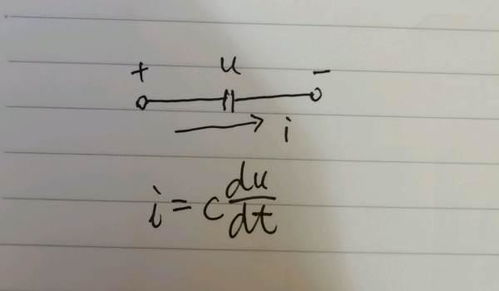 + u -
i
i = c du/dt